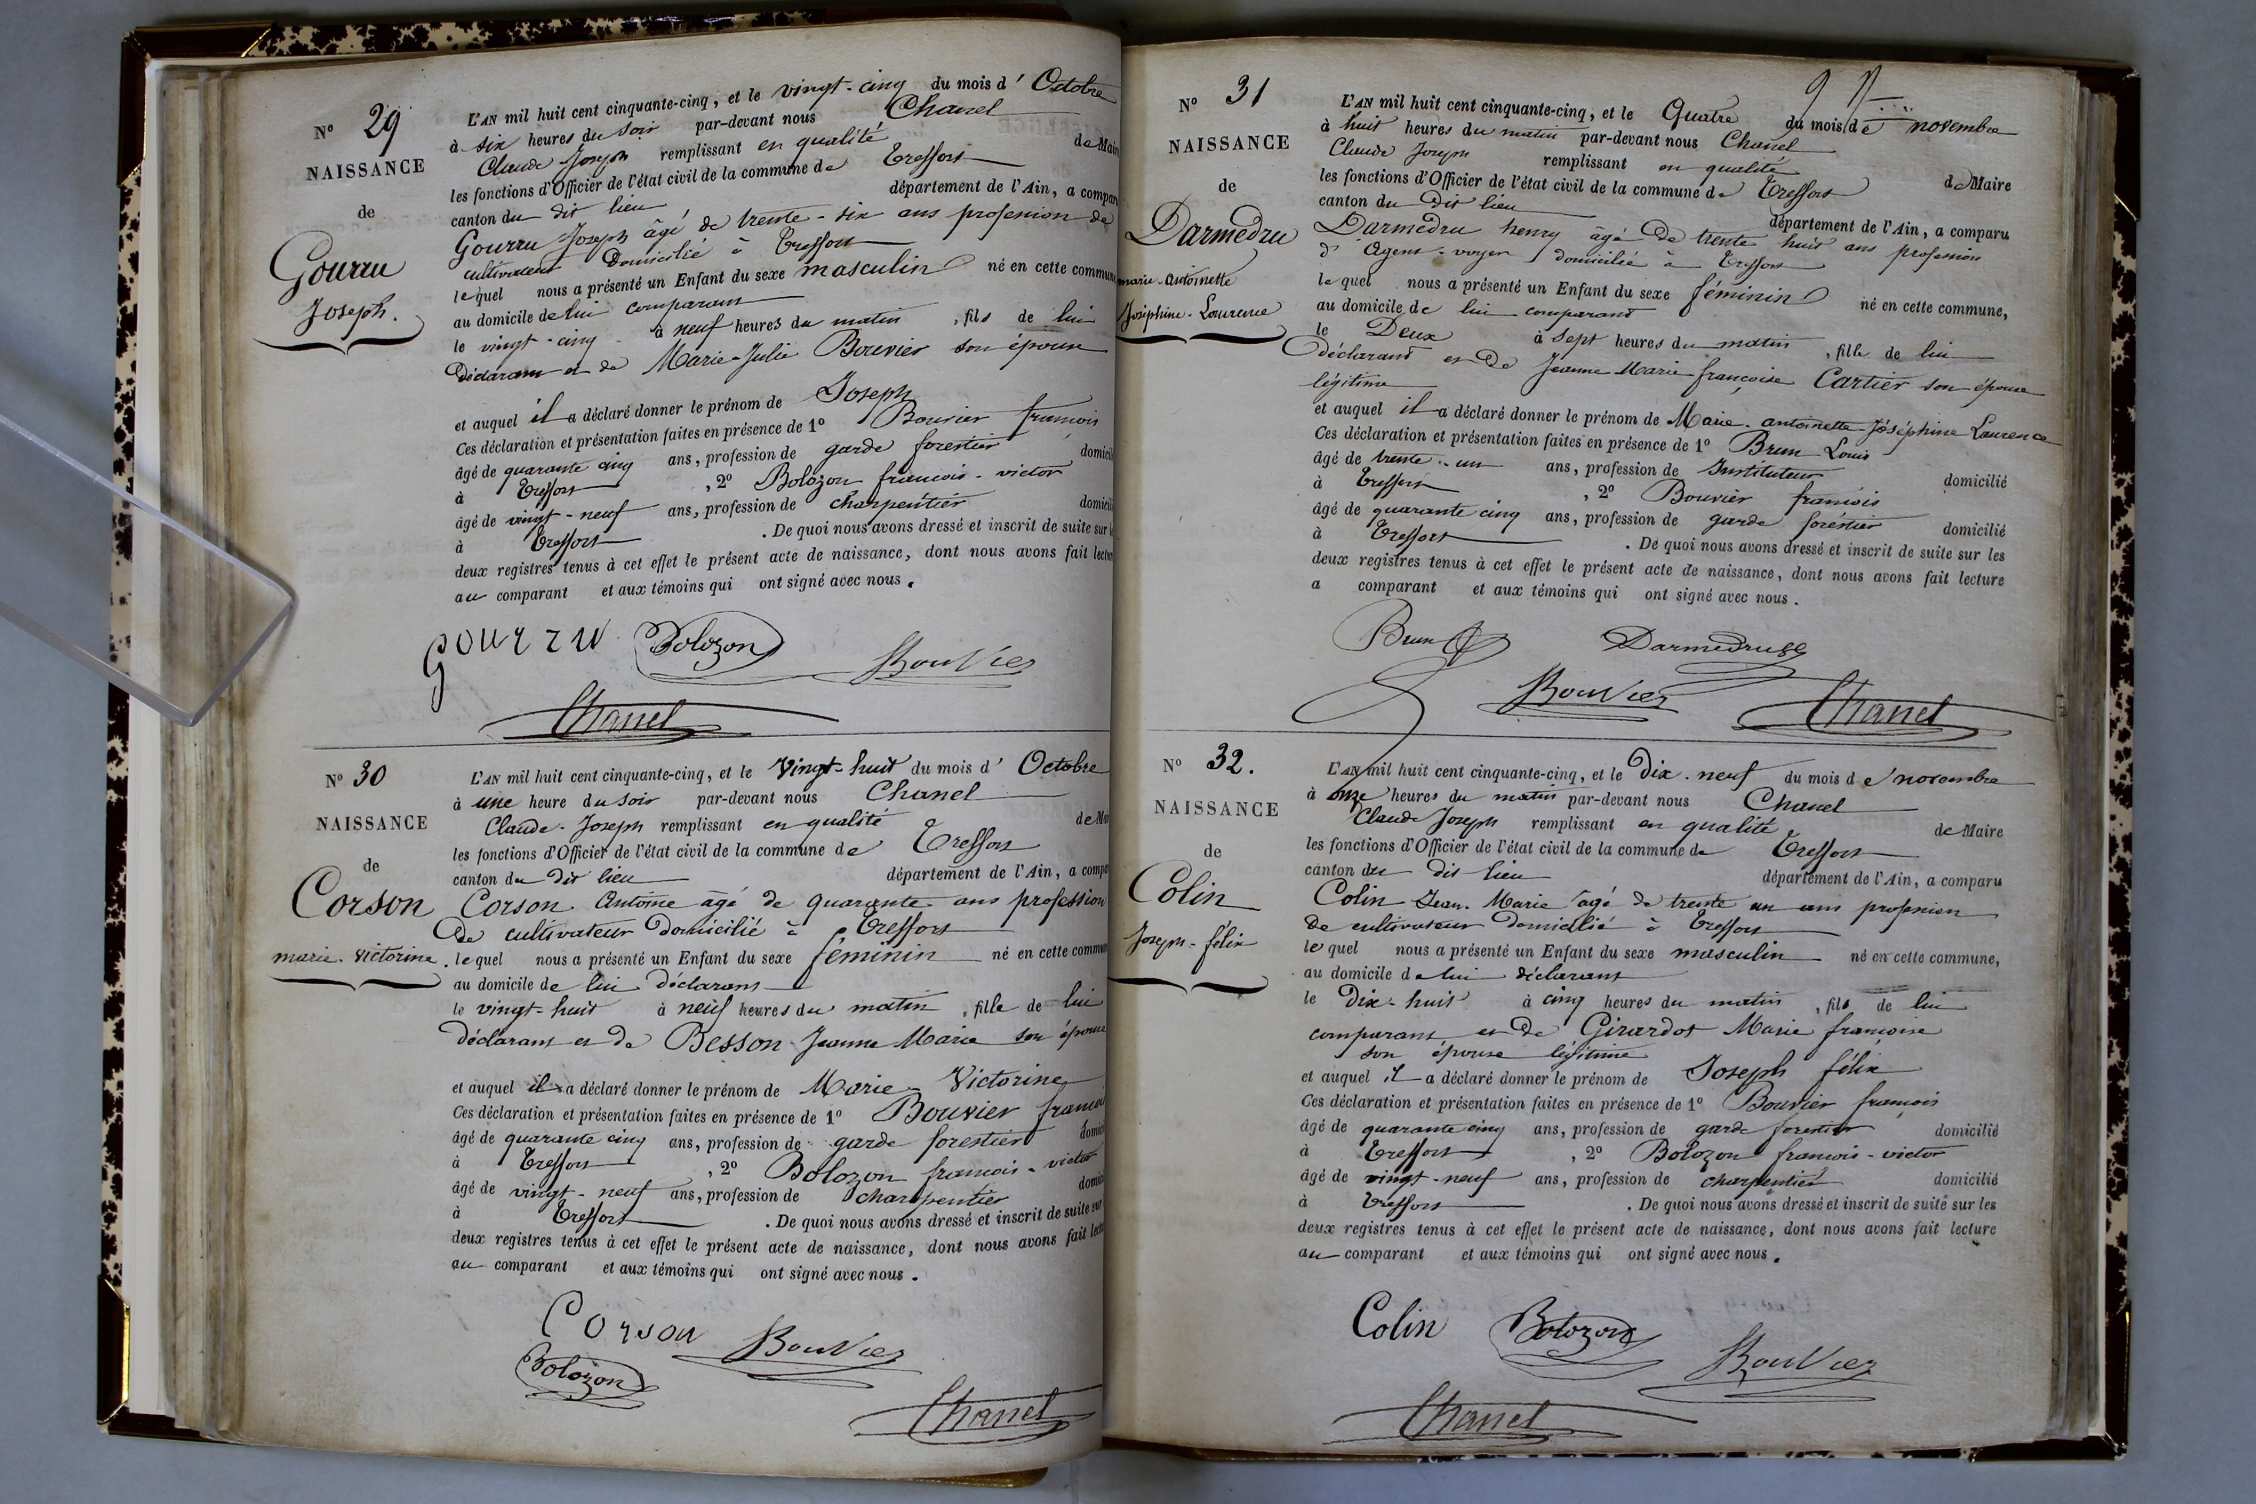 N° 29
NAISSANCE
de
Gourru
Joseph.
L'AN mil huit cent cinquante-cinq, et le vingt-cinq du mois d'Octobre
à six heures du soir par-devant nous Chanel
Claude Joseph remplissant en qualité de Maire
les fonctions d'Officier de l'état civil de la commune de Treffort
canton du dit lieu département de l'Ain, a comparu
Gourru Joseph âgé de trente-six ans profession de
cultivateur Domicilié à Treffort
lequel nous a présenté un Enfant du sexe masculin né en cette commune
au domicile de lui comparant
le vingt-cinq à neuf heures du matin, fils de lui
Déclarant et de Marie-Julie Bouvier son épouse
et auquel il a déclaré donner le prénom de Joseph
Ces déclaration et présentation faites en présence de 1° Bouvier francois
âgé de quarante cinq ans, profession de garde forestier domicilié
à Treffort, 2° Bolozon francois-victor
âgé de vingt-neuf ans, profession de charpentier domicilié
à Treffort. De quoi nous avons dressé et inscrit de suite sur les
deux registres tenus à cet effet le présent acte de naissance, dont nous avons fait lecture
au comparant et aux témoins qui ont signé avec nous.
Gourru Bolozon Bouvier
Chanel
N° 30
NAISSANCE
de
Corson
marie-victorine.
L'AN mil huit cent cinquante-cinq, et le Vingt-huit du mois d'Octobre
à une heure du soir par-devant nous Chanel
Claude-Joseph remplissant en qualité de Mai
les fonctions d'Officier de l'état civil de la commune de Treffort
canton du dit lieu département de l'Ain, a compa
Corson Antoine âgé de quarante ans profession
De cultivateur Domicilié à Treffort
lequel nous a présenté un Enfant du sexe féminin né en cette commun
au domicile de lui déclarant
le vingt-huit à neuf heures du matin, fille de lui
déclarant et de Besson Jeanne Marie son épouse
et auquel il a déclaré donner le prénom de Marie-Victorine
Ces déclaration et présentation faites en présence de 1° Bouvier francois
âgé de quarante cinq ans, profession de garde forestier domici
à Treffort, 2° Bolozon francois-victor
âgé de vingt-neuf ans, profession de charpentier domici
à Treffort. De quoi nous avons dressé et inscrit de suite sur
deux registres tenus à cet effet le présent acte de naissance, dont nous avons fait lectu
au comparant et aux témoins qui ont signé avec nous.
Corson Bouvier
Bolozon
Chanel
N° 31
NAISSANCE
de
Darmedru
marie-antoinette
Joséphine-Laurence
L'AN mil huit cent cinquante-cinq, et le Quatre du mois de novembre
à huit heures du matin par-devant nous Chanel
Claude Joseph remplissant en qualité de Maire
les fonctions d'Officier de l'état civil de la commune de Treffort
canton du Dit lieu département de l'Ain, a comparu
Darmedru henry âgé De trente huit ans profession
d'Agent-voyer domicilié à Treffort
lequel nous a présenté un Enfant du sexe féminin né en cette commune,
au domicile de lui comparant
le Deux à sept heures du matin, fille de lui
déclarant et De Jeanne Marie françoise Cartier son épouse
légitime
et auquel il a déclaré donner le prénom de Marie-antoinette Joséphine Laurence
Ces déclaration et présentation faites en présence de 1° Brun Louis
âgé de trente-un ans, profession de Instituteur domicilié
à Treffort, 2° Bouvier francois
âgé de quarante cinq ans, profession de garde foréstier domicilié
à Treffort. De quoi nous avons dressé et inscrit de suite sur les
deux registres tenus à cet effet le présent acte de naissance, dont nous avons fait lecture
a comparant et aux témoins qui ont signé avec nous.
Brun Darmedru
Bouvier Chanel
N° 32.
NAISSANCE
de
Colin
Joseph-félix
L'AN mil huit cent cinquante-cinq, et le Dix-neuf du mois de novembre
à onze heures du matin par-devant nous Chanel
Claude Joseph remplissant en qualité de Maire
les fonctions d'Officier de l'état civil de la commune de Treffort
canton du dit lieu département de l'Ain, a comparu
Colin Jean-Marie âgé de trente un ans profession
De cultivateur domicilié à Treffort
lequel nous a présenté un Enfant du sexe masculin né en cette commune,
au domicile de lui déclarant
le Dix-huit à cinq heures du matin, fils de lui
comparant et de Girardot Marie françoise
son épouse légitime
et auquel il a déclaré donner le prénom de Joseph félix
Ces déclaration et présentation faites en présence de 1° Bouvier françois
âgé de quarante cinq ans, profession de garde forestier domicilié
à Treffort, 2° Bolozon francois-victor
âgé de vingt-neuf ans, profession de charpentier domicilié
à Treffort. De quoi nous avons dressé et inscrit de suite sur les
deux registres tenus à cet effet le présent acte de naissance, dont nous avons fait lecture
au comparant et aux témoins qui ont signé avec nous.
Colin Bolozon Bouvier
Chanel